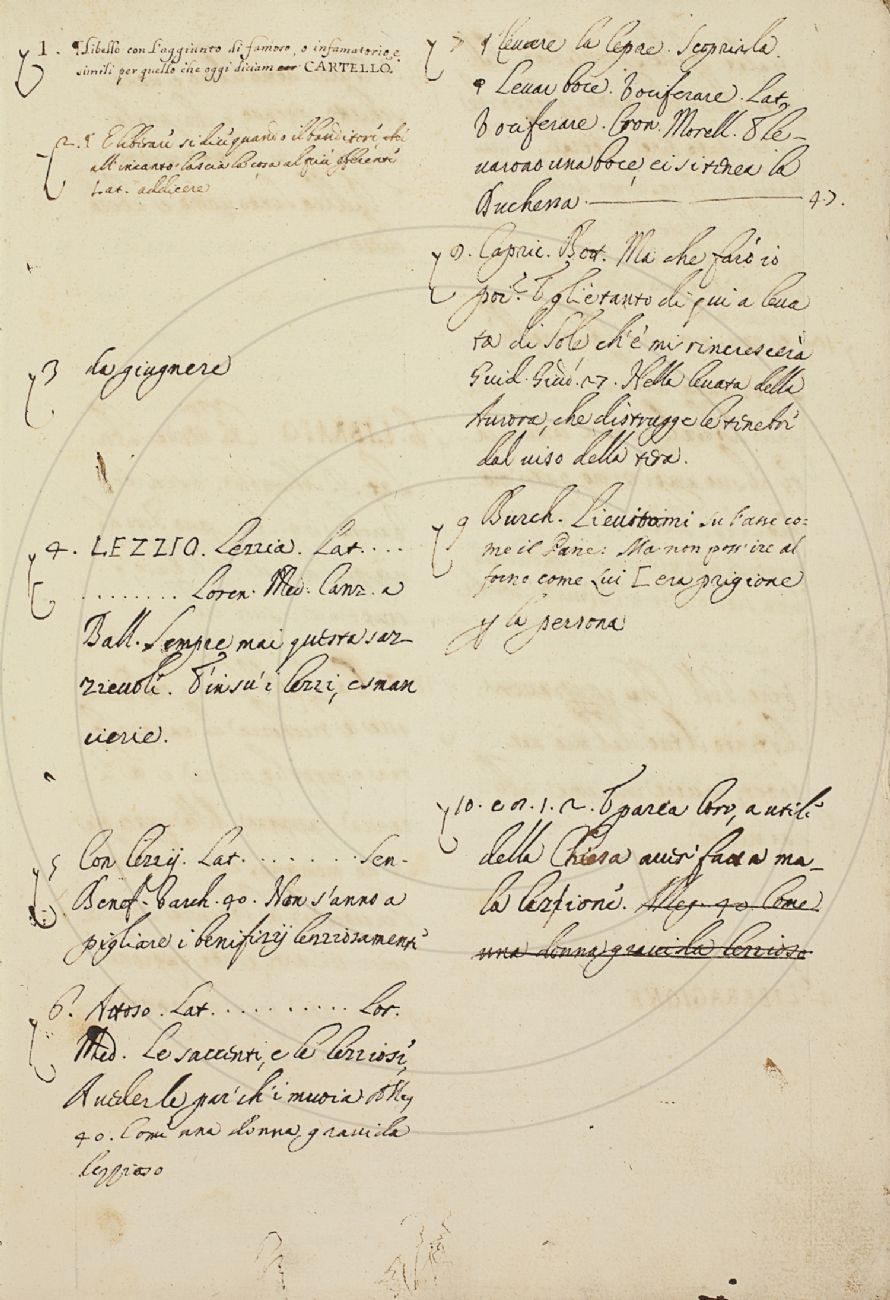 1. ¶ Libello con l'aggiunto di famoso, o infamatorio, e
simili per quello che oggi diciam CARTELLO.
2. ¶ E liberare si dice quando il banditore
all'incanto lascia la cosa al più offerente
Lat. addicere
3 da giugnere
4. LEZZIO. Lezzia. Lat. . . .
. . . . . . . . Loren. Med. Canz. a
Ball. Sempre mai questa saz-
zievoli. in su' i lezzi, e sman
cierie.
5 Con lezzij. Lat. . . . . . . . Sen.
Benef. Varch. 40. Non s'anno a
pigliare i benifizij lezziosamente
6. Attoso. Lat. . . . . . . . . . . Lor.
Med. Le saccenti, e le lezziose,
Vederle par ch'i muoia
40. Come una donna gravida
lezzioso
7 ¶ Levare la lepre. Scoprirla.
¶ Levar boce. Vociferare. Lat.
Vociferare. Cron. Morell. E le-
varono una boce, ei si tenea la
Duchessa. 47.
8. Capric. Bott. Ma che farò io
poi? E gli è tanto di qui a leva
ta di Sole ch'e' mi rincrescerà
Guid. Giud. 27. Nella levata della
Aurora, che distrugge le tenebre
dal viso della tera.
9 Burch. Lievitomi su fasse co-
me il Pane: Ma non poss'ire al
forno come lui [era prigione
la persona
10. e 8. 1. 2. E parea loro, a utile
della Chiesa aver fatta ma-
la lezione. Alleg. 40. Come
una donna gravida lezzioso